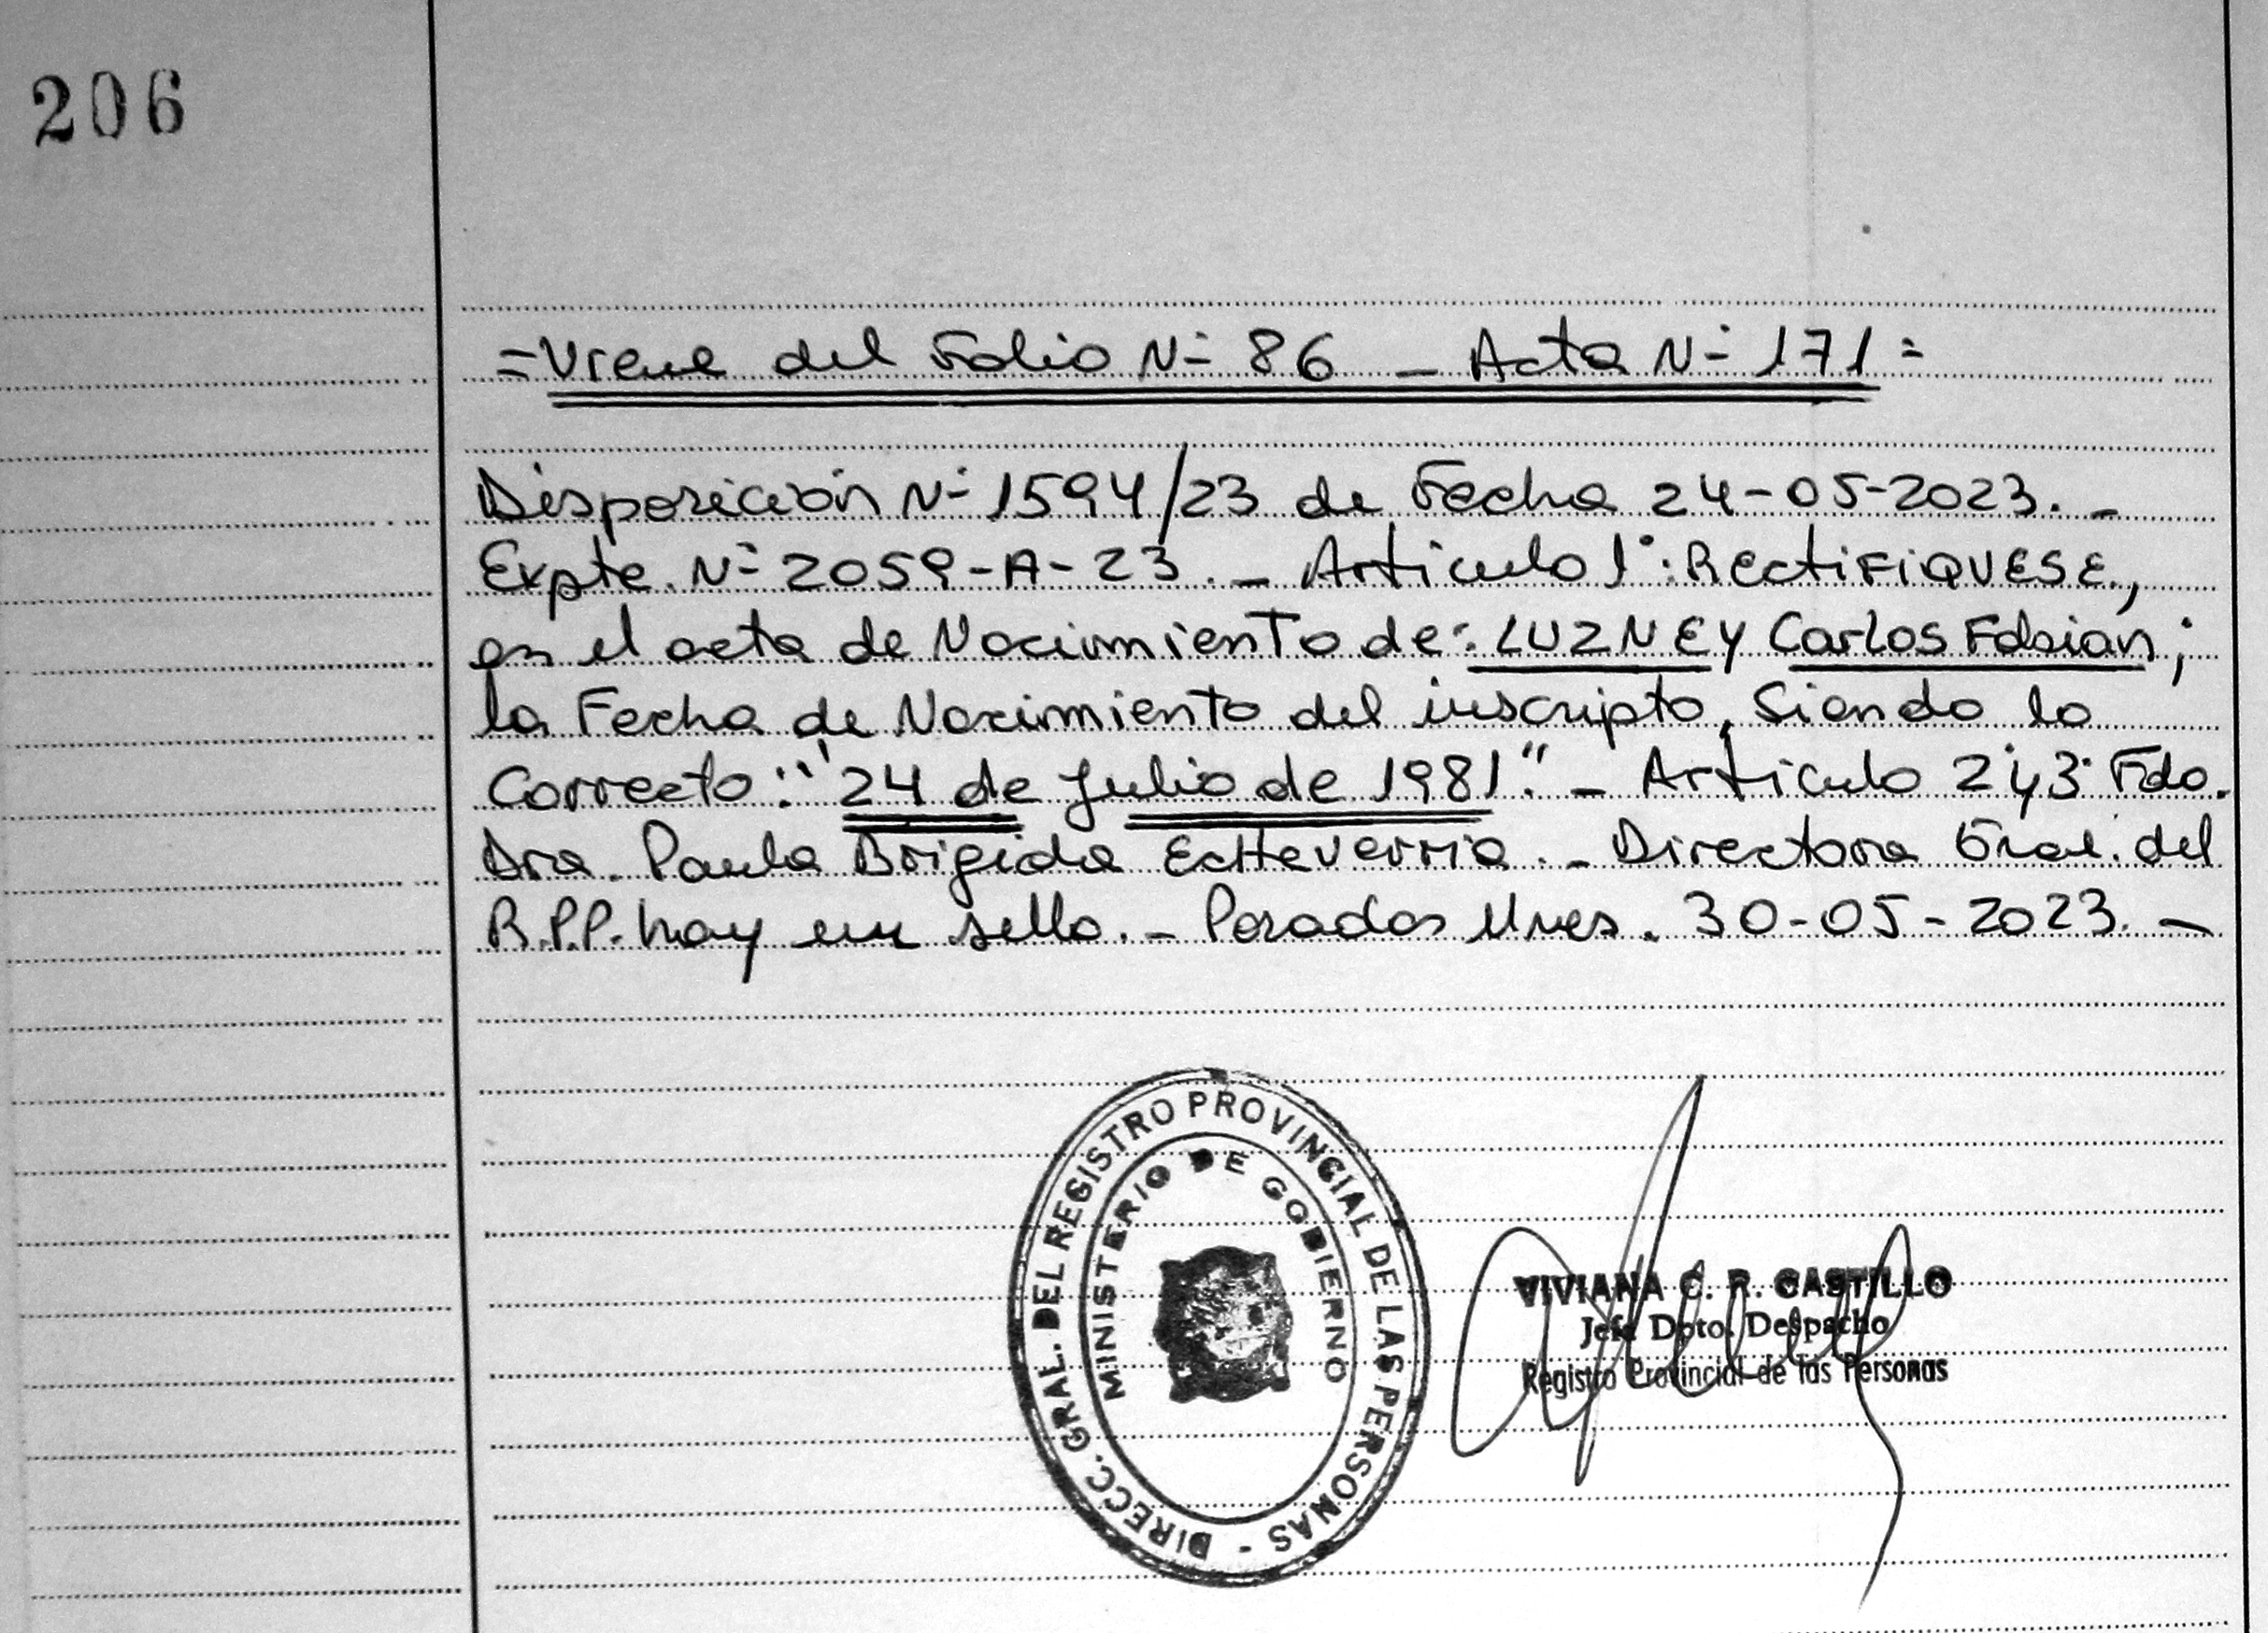 206
=Viene del Folio Nº 86 _ Acta Nº 171=
Disposición Nº 1594/23 de Fecha 24-05-2023._
Expte. Nº 2059-A-23._ Articulo 1º: RectiFIQUESE,
en el acta de Nacimiento de: LUZNEY Carlos Fabian;
la Fecha de Nacimiento del inscripto, Siendo lo
Correcto: "24 de Julio de 1981"._ Articulo 2º y 3º Fdo.
Dra. Paula Brigida Echeverria._ Directora Gral. del
R.P.P. hay un sello._ Posadas Mnes. 30-05-2023._
DIRECC. GRAL. DEL REGISTRO PROVINCIAL DE LAS PERSONAS -
MINISTERIO DE GOBIERNO
VIVIANA C. R. CASTILLO
Jefa Dpto. Despacho
Registro Provincial de las Personas